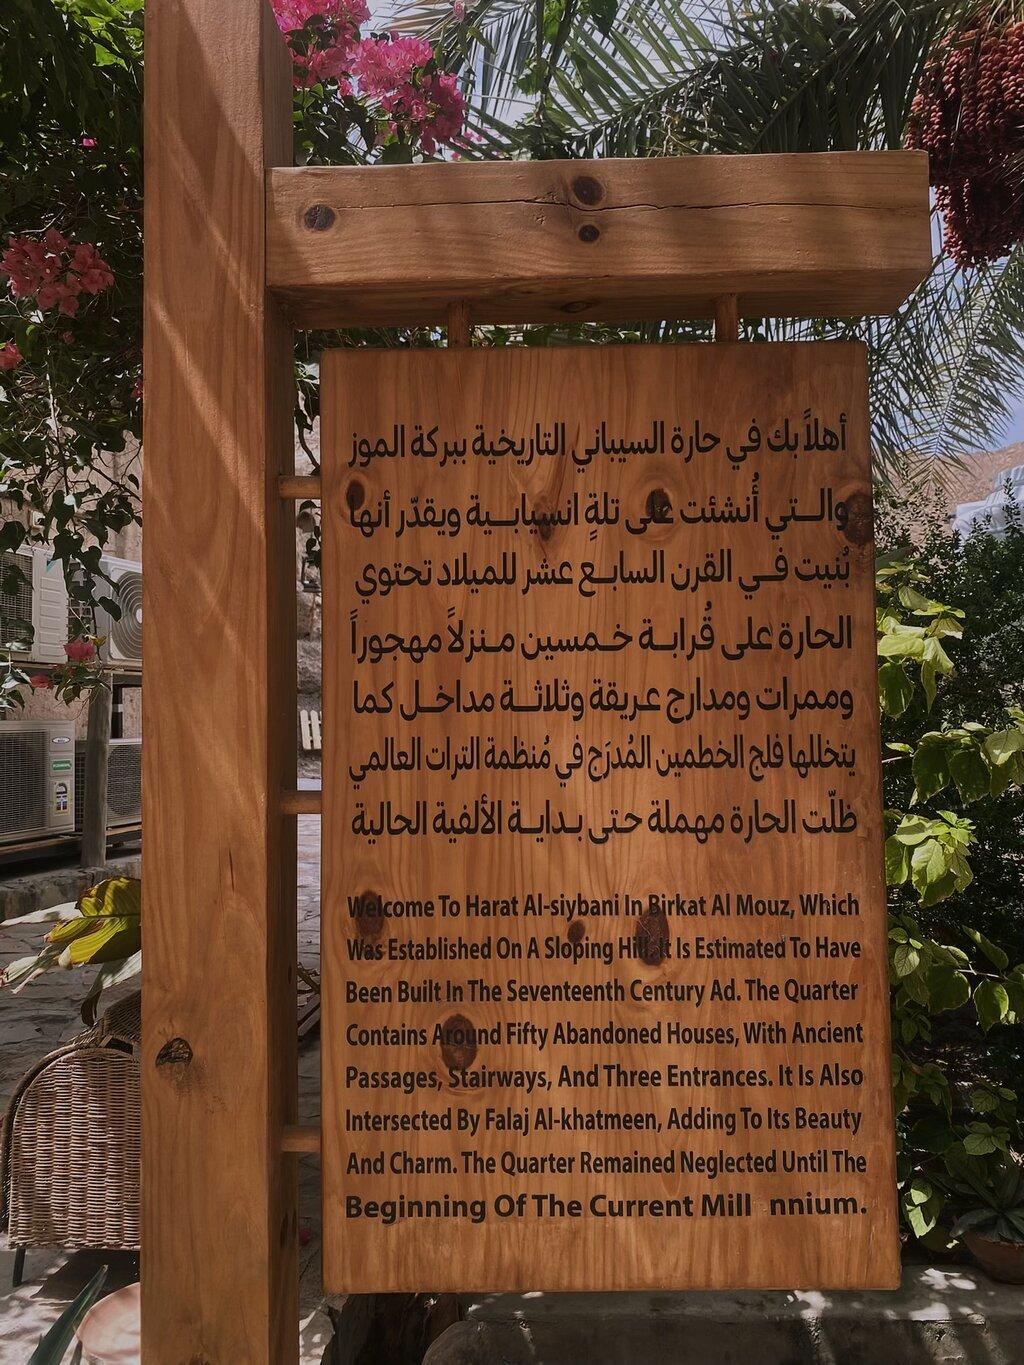 أهلاً بك في حارة السيباني التاريخية ببركة الموز
والتي أُنشئت على تلةٍ انسيابية ويقدّر أنها
بُنيت في القرن السابع عشر للميلاد تحتوي
الحارة على قُرابة خمسين منزلاً مهجوراً
وممرات ومدارج عريقة وثلاثة مداخل كما
يتخللها فلج الخطمين المُدرَج في مُنظمة الترات العالمي
ظلّت الحارة مهملة حتى بداية الألفية الحالية
Welcome To Harat Al-siybani In Birkat Al Mouz, Which
Was Established On A Sloping Hill. It Is Estimated To Have
Been Built In The Seventeenth Century Ad. The Quarter
Contains Around Fifty Abandoned Houses, With Ancient
Passages, Stairways, And Three Entrances. It Is Also
Intersected By Falaj Al-khatmeen, Adding To Its Beauty
And Charm. The Quarter Remained Neglected Until The
Beginning Of The Current Mill nnium.